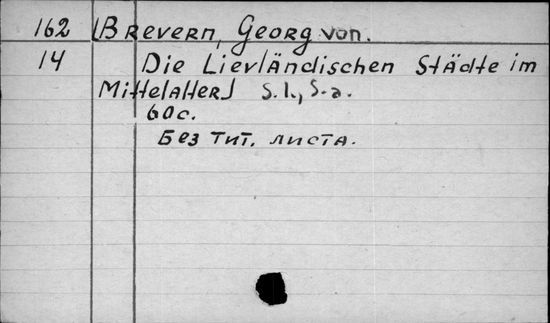 162 [Brevern, Georg von.
14 Die Lievländischen Städte im
Mittelalter] S. l., S. a.
60 c.
Без тит. листа.